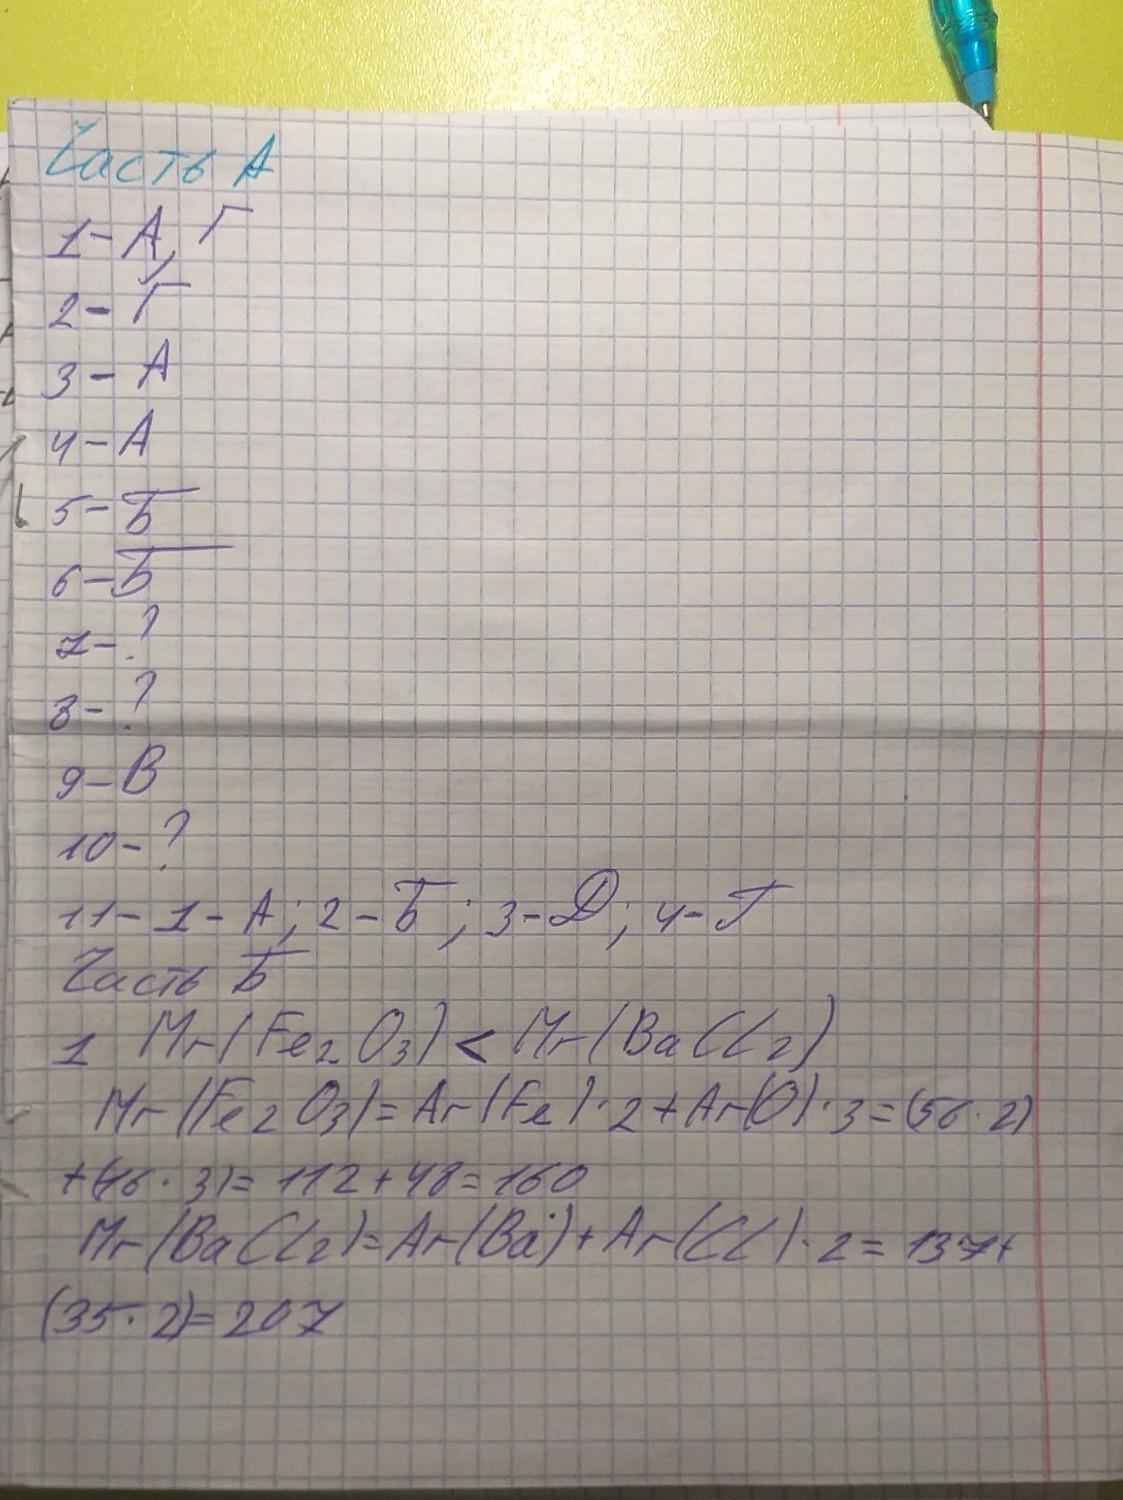 Часть А
1-А, Г
2-Г
3-А
4-А
5-Б
6-Б
7-?
8-?
9-В
10-?
11-1-А; 2-Б; 3-Д; 4-Г
Часть Б
1 Mr(Fe2O3)<Mr(BaCl2)
Mr(Fe2O3)=Ar(Fe)·2+Ar(O)·3=(56·2)
+(16·3)=112+48=160
Mr(BaCl2)=Ar(Ba)+Ar(Cl)·2=137+
(35·2)=207